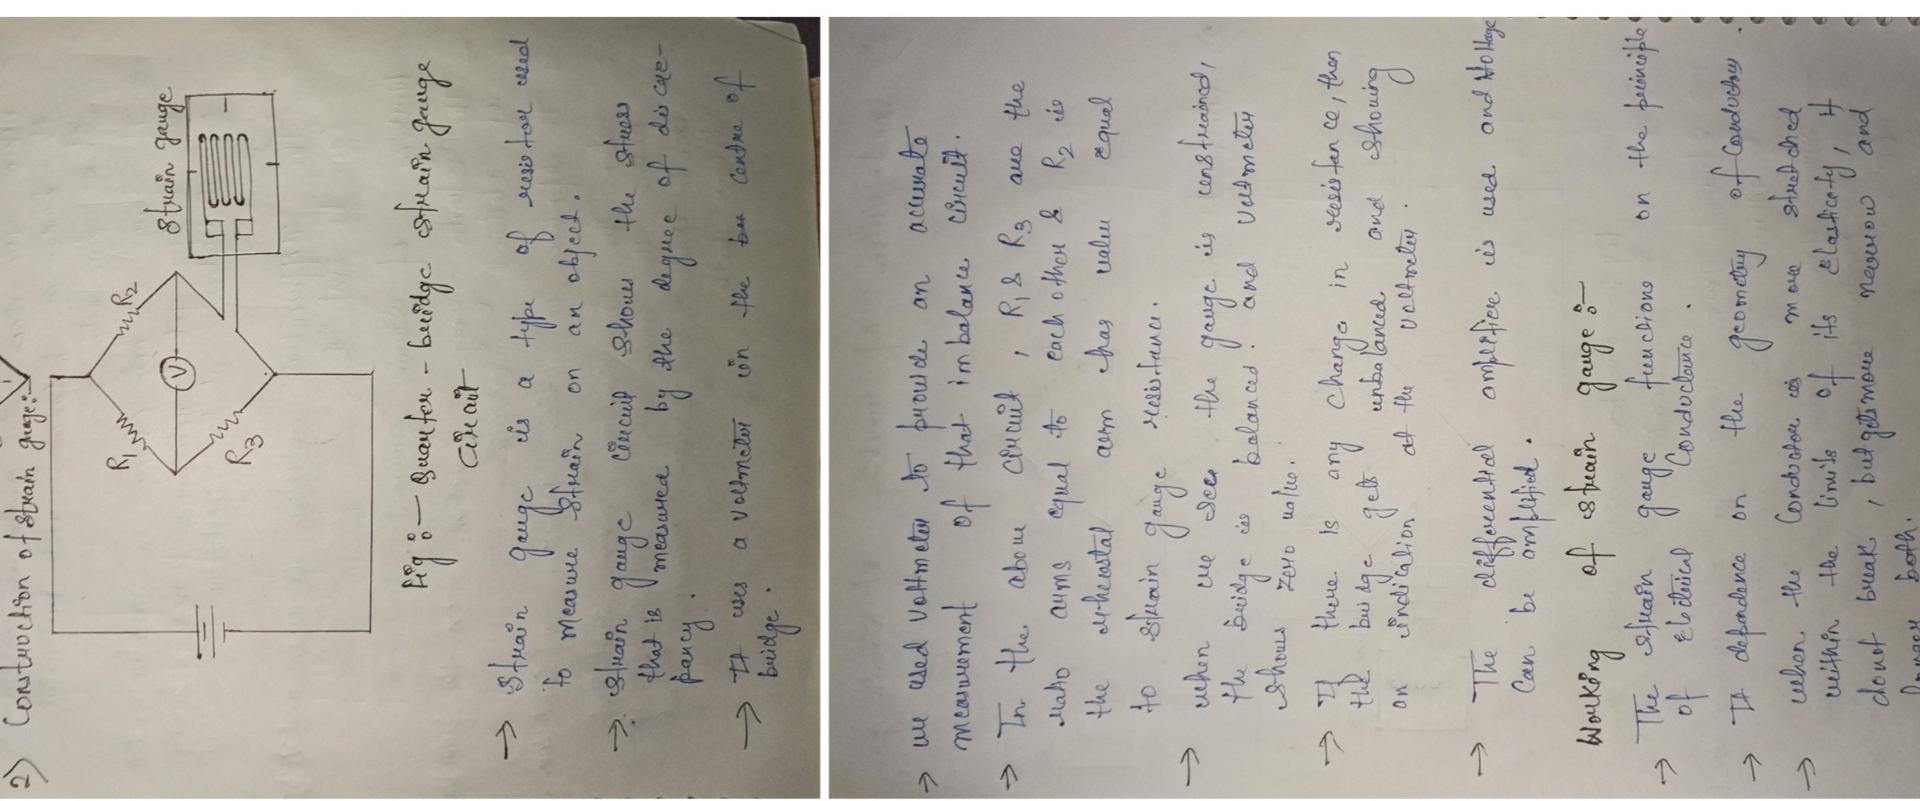 2) Construction of strain guage:-
R1
R2
V
R3
Strain gauge
Fig :- Quarter - bridge strain gauge
circuit
→ Strain gauge is a type of resistor used
to measure strain on an object.
→ Strain gauge circuit shows the stress
that is measured by the degree of discre-
pancy.
→ It uses a voltmeter in the centre of
bridge.
→ we used voltmeter to provide an accurate
measurement of that imbalance circuit.
→ In the above circuit, R1 & R3 are the
ratio arms equal to each other & R2 is
the rheostat arm has value equal
to strain gauge resistance.
→ when we see, the gauge is constrained,
the bridge is balanced. and voltmeter
shows zero value.
→ If there is any change in resistance, then
the bridge gets unbalanced and showing
an indication at the voltmeter.
→ The differential amplifier is used and voltage
can be amplified.
Working of strain gauge :-
→ The strain gauge functions on the principle
of Electrical Conductance.
→ It dependence on the geometry of Conductor.
→ when the Conductor is more stretched
within the limits of its elasticity, it
donot break, but gets more narrow and
longer both.